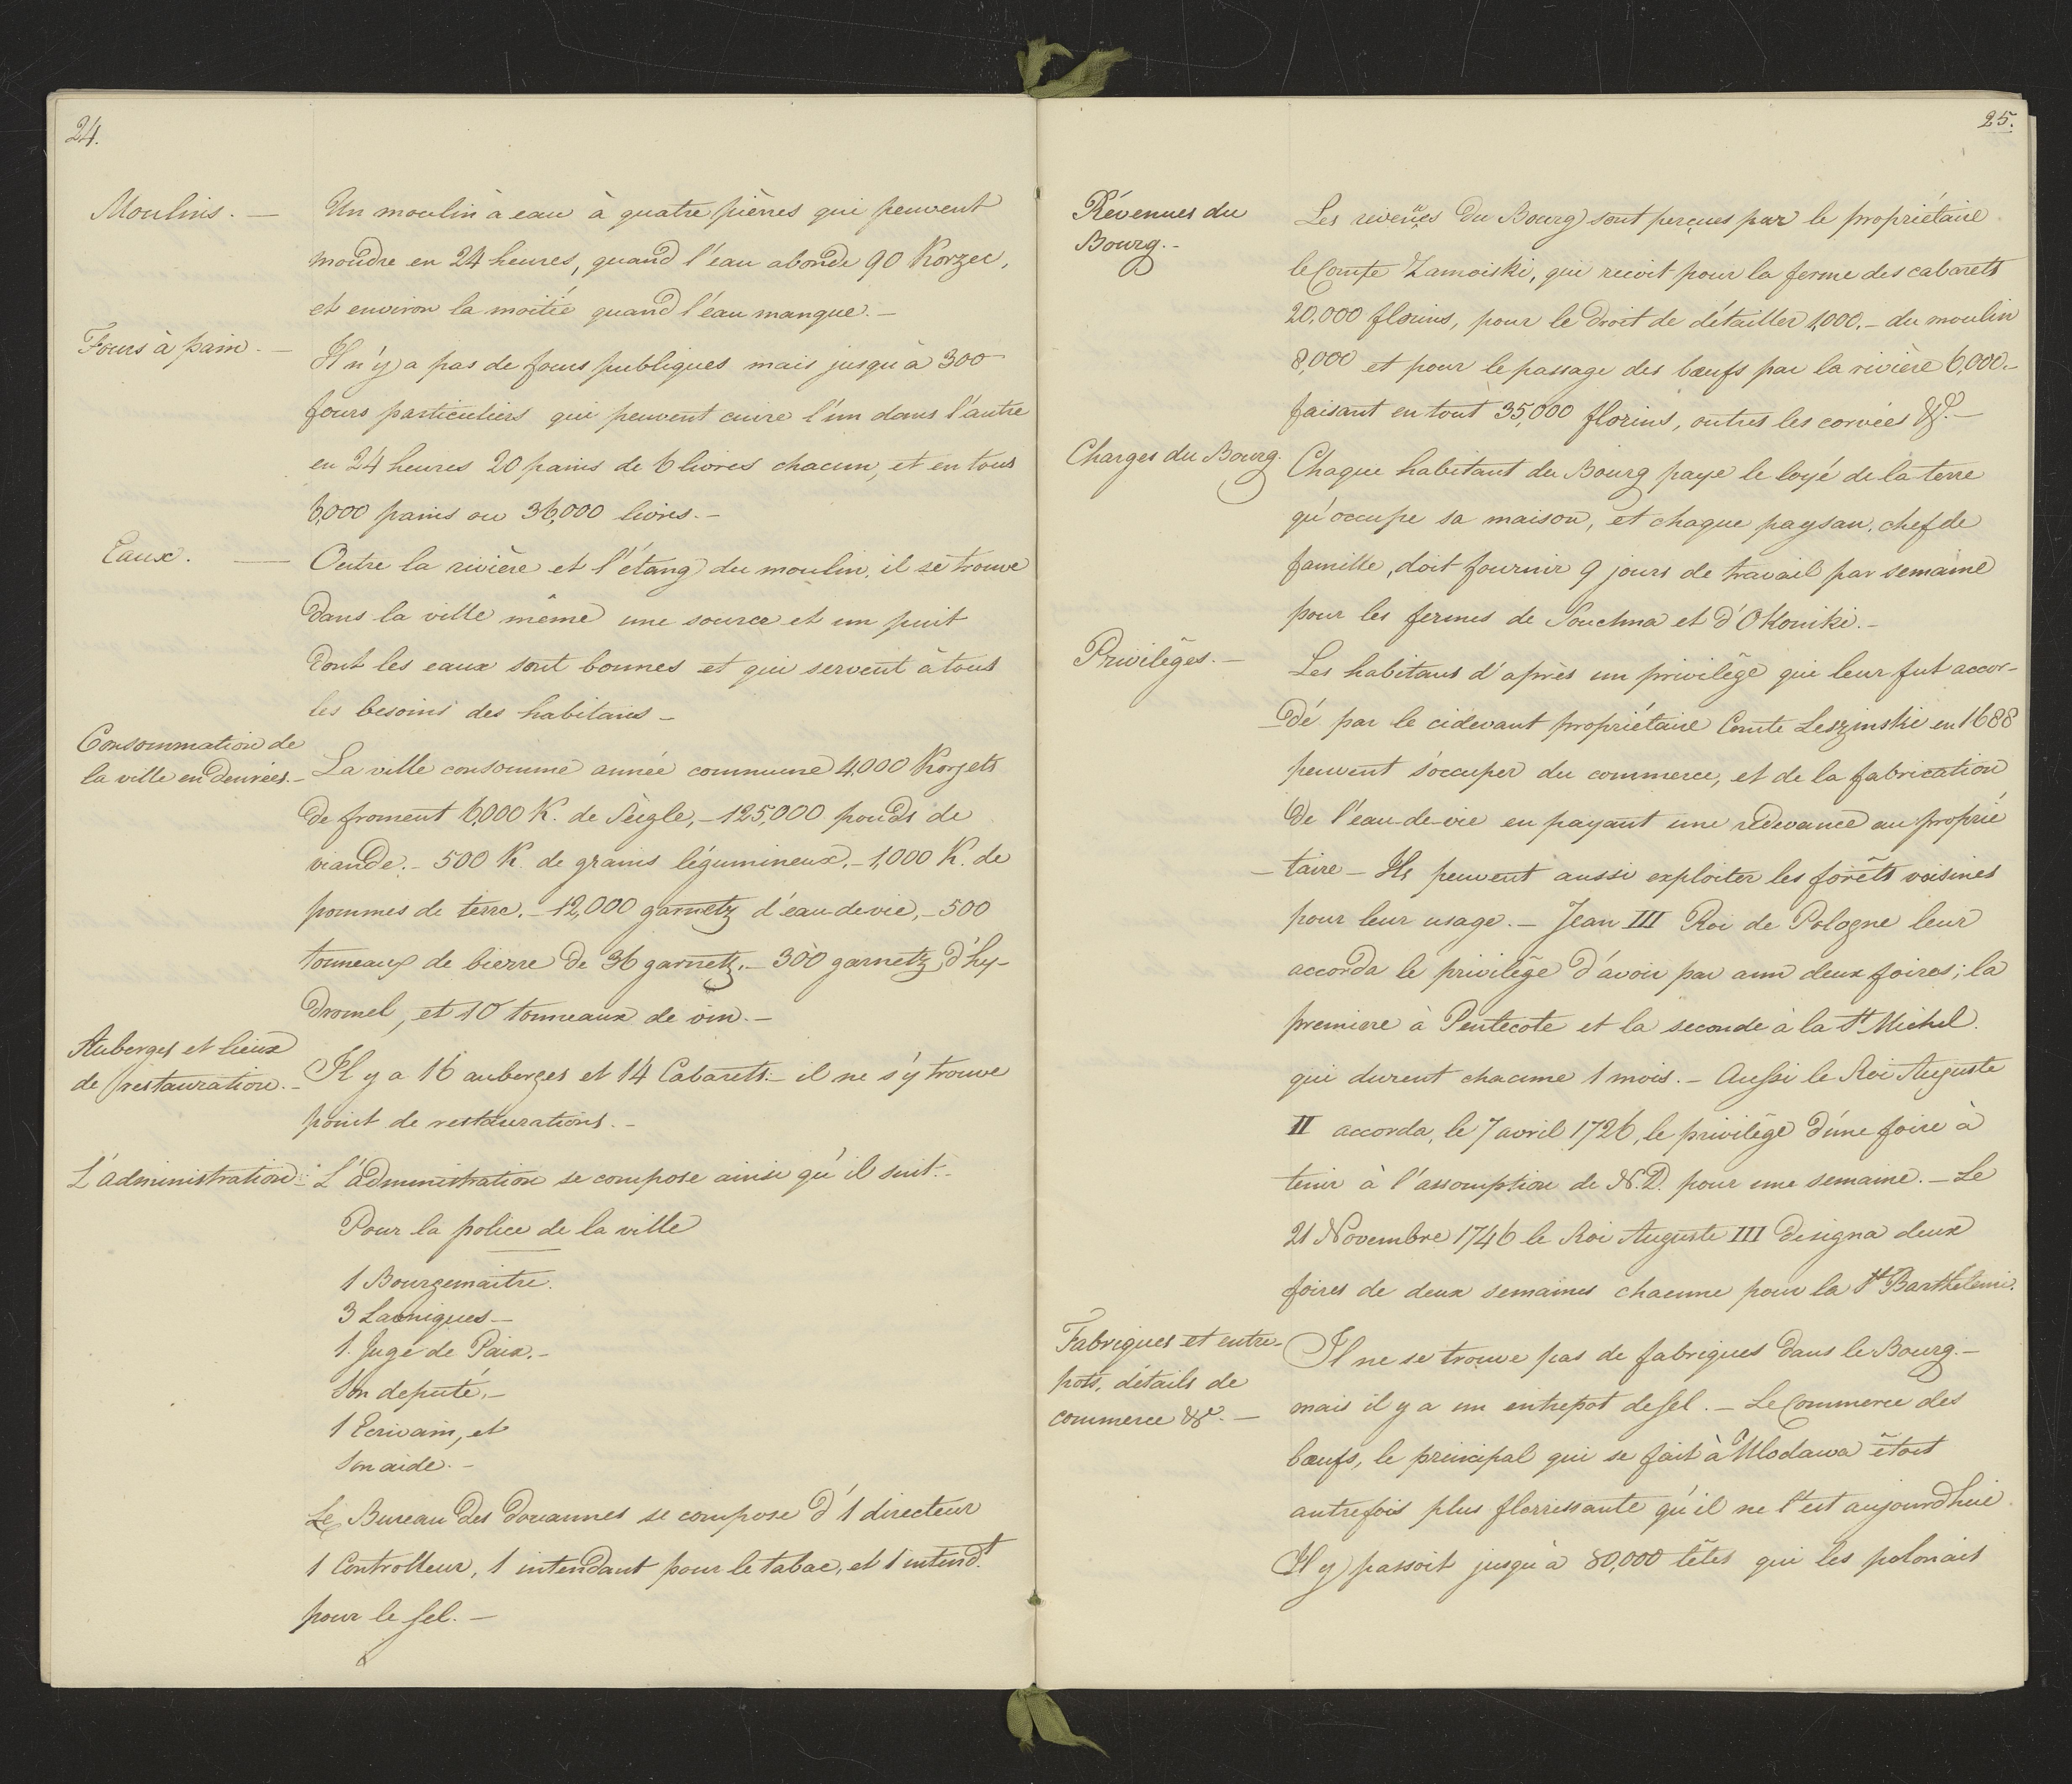 24.
Moulins. —
Un moulin à eau à quatre pièrres qui peuvent
moudre en 24 heures, quand l'eau abonde 90 Korzec,
et environ la moitié quand l'éau manque. —
Fours à pain. —
Il n'y a pas de fours publiques mais jusqu'à 300
fours particuliers qui peuvent cuire l'un dans l'autre
en 24 heures 20 pains de 6 livres chacun, et en tous
6,000 pains ou 36,000 livres. —
Eaux. —
Outre la rivière et l'étang du moulin, il se trouve
dans la ville même une source et un puit
dont les eaux sont bonnes et qui servent à tous
les besoins des habitans —
Consommation de
la ville en denrées. —
La ville consomme année commune 4,000 Korzets
de froment 6,000 K. de Seigle, — 125,000 pouds de
viande. — 500 K. de grains légumineux. — 1,000 K. de
pommes de terre. — 12,000 garnetz d'eau de vie, — 500
tonneaux de bierre de 36 garnetz. — 300 garnetz d'hy-
dromel, et 10 tonneaux de vin. —
Auberges et lieux
de restauration. —
Il y a 16 auberges et 14 Cabarets. — il ne s'y trouve
point de restaurations. —
L'administration. —
L'administration se compose ainsi qu'il suit. —
Pour la police de la ville
1 Bourgemaitre.
3 Lavniques —
1. Juge de Paix. —
Son deputé, —
1 Ecrivain, et
Son aide. —
Le Bureau des douannes se compose d'1 directeur
1 Controlleur, 1 intendant pour le tabac, et 1 intendt.
pour le sel. —
25.
Révenues du
Bourg. —
Les revenües du Bourg sont perçues par le propriétaire
le Comte Zamoiski, qui recoit pour la ferme des cabarets
20,000 florins, pour le droit de détailler 1,000. — du moulin
8,000 et pour le passage des bœufs par la rivière 6,000. —
faisant en tout 35,000 florins, outres les corvées &c. —
Charges du Bourg.
Chaque habitant du Bourg paye le loyé de la terre
qu'occupe sa maison, et chaque paysan, chef de
famille, doit fournir 9 jours de travail par semaine
pour les fermes de Souchna et d'Okoniki. —
Privilèges. —
Les habitans d'après un privilège qui leur fut accor-
dé par le cidevant propriétaire Comte Leszinski en 1688
peuvent s'occuper du commerce, et de la fabrication
de l'eau-de-vie en payant une redevance au proprié
— taire — Ils peuvent aussi exploiter les forêts voisines
pour leur usage. — Jean III Roi de Pologne leur
accorda le privilège d'avoir par ann deux foires; la
premiere à Pentecote et la seconde à la St. Michel.
qui durent chacune 1 mois. — Aussi le Roi Auguste
II accorda, le 7 avril 1726, le privilège d'une foire à
tenir à l'assomption de N.D. pour une semaine. — Le
21 Novembre 1746 le Roi Auguste III designa deux
foires de deux semaines chacune pour la St. Barthelemi.
Fabriques et entre-
pots, détails de
commerce &c. —
Il ne se trouve pas de fabriques dans le Bourg. —
mais il y a un entrepot de sel. — Le Commerce des
bœufs, le principal qui se fait à Wlodawa étoit
autrefois plus florrissante qu'il ne l'est aujourdhui
Il y passoit jusqu'à 80,000 têtes qui les polonais